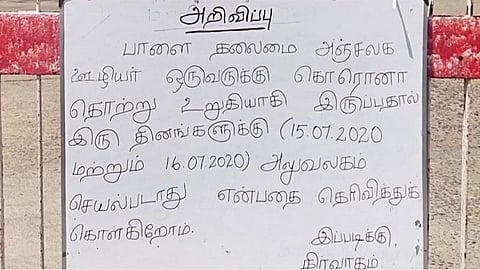 அறிவிப்பு
பாளை தலைமை அஞ்சலக
ஊழியர் ஒருவருக்கு கொரோனா
தொற்று உறுதியாகி இருப்பதால்
இரு தினங்களுக்கு (15.07.2020
மற்றும் 16.07.2020) அலுவலகம்
செயல்படாது என்பதை தெரிவித்துக்
கொள்கிறோம்.
இப்படிக்கு,
நிர்வாகம்.